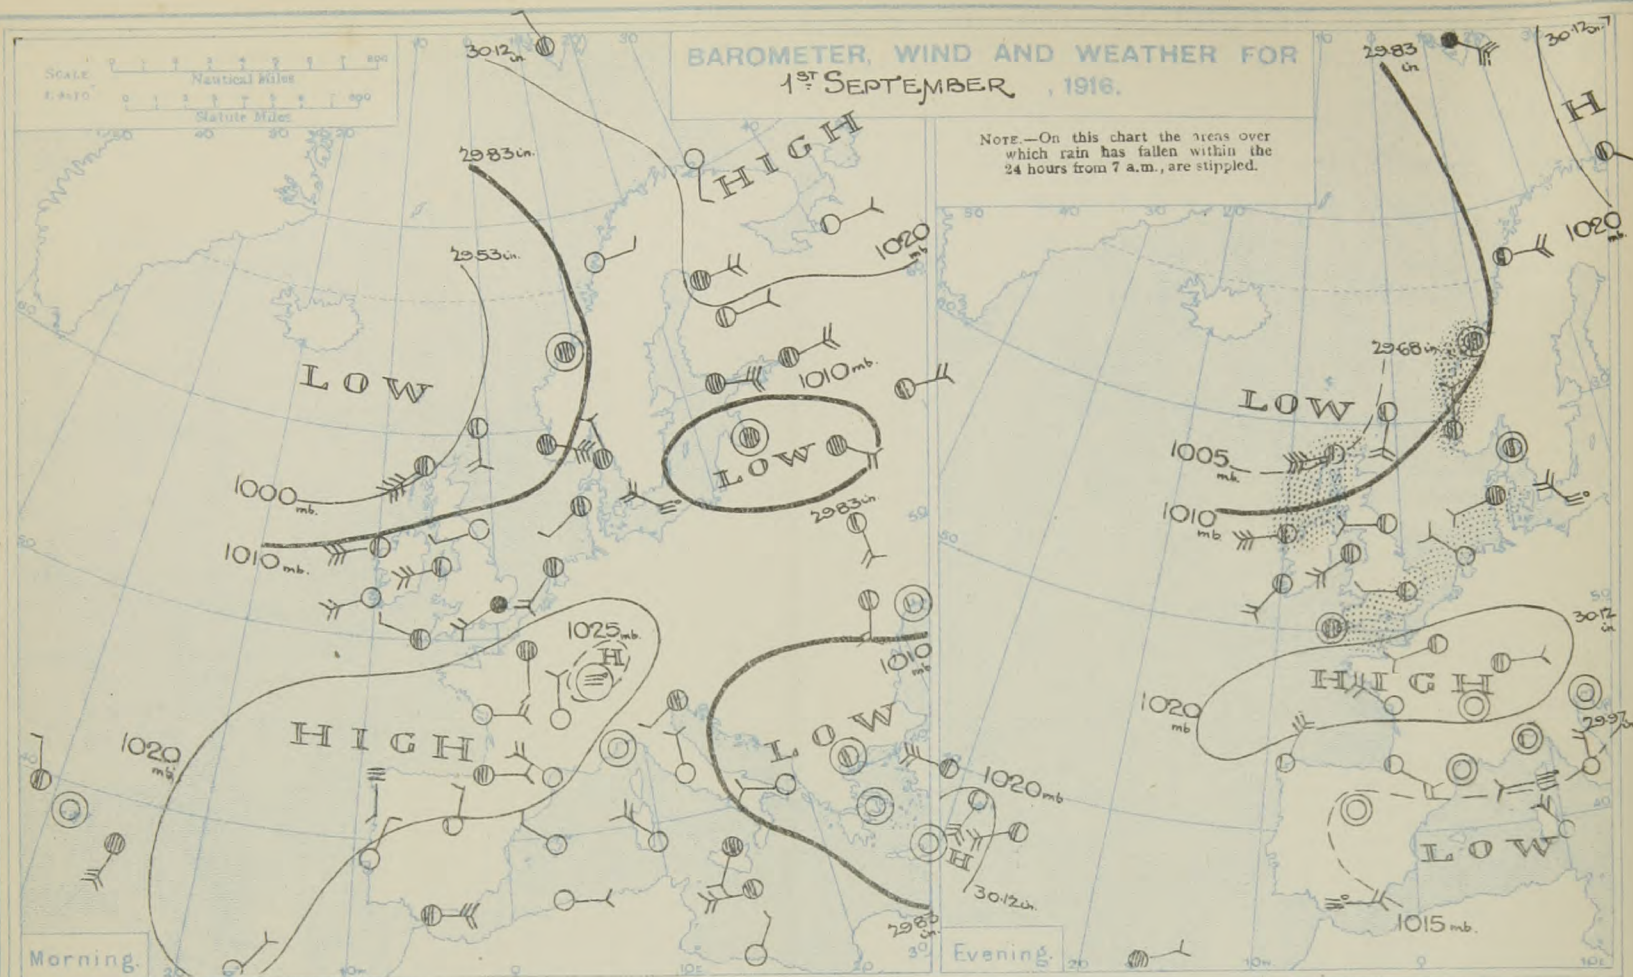 BAROMETER, WIND AND WEATHER FOR
1ST SEPTEMBER, 1916.
NOTE.—On this chart the areas over
which rain has fallen within the
24 hours from 7 a.m., are stippled.
SCALE
Nautical Miles
Statute Miles
30·12 in.
29·83 in.
29·53 in.
HIGH
1020 mb.
LOW
1010 mb.
LOW
29·83 in.
1000 mb.
1010 mb.
1025 mb.
H
HIGH
1020 mb.
1010 mb.
LOW
1020 mb
H
30·12 in.
29·83 in.
Morning.
29·83 in
30·12 in.
H
1020 mb.
29·68 in.
LOW
1005 mb.
1010 mb.
30·12 in.
HIGH
1020 mb
29·97 in
LOW
1015 mb.
Evening.